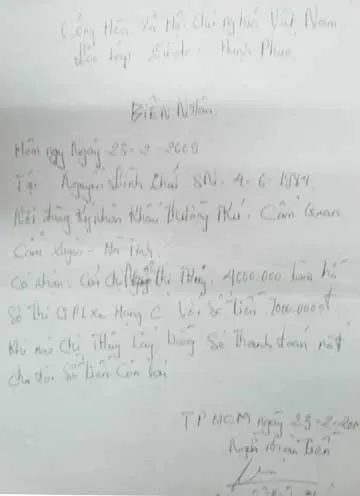 Cộng Hòa Xã Hội Chủ nghĩa Việt Nam
Độc lập Tự do Hạnh Phúc
BIÊN NHẬN
Hôm nay Ngày 23-2-2009
Tôi Nguyễn Đình SN. 4-6-1984
Khẩu Thường Cẩm Quan
Cẩm Xuyên - Hà Tĩnh
Có nhận Của Chị Thị Thủy 4000.000 làm hồ
Sơ thi GPLX Hạng C Với Số tiền 7000.000đ
Khi nào Chị Thủy Lấy bằng Sẽ Thanh toán nốt
cho tôi Số tiền Còn lại
TP HCM ngày 23-2-200
Người nhận tiền